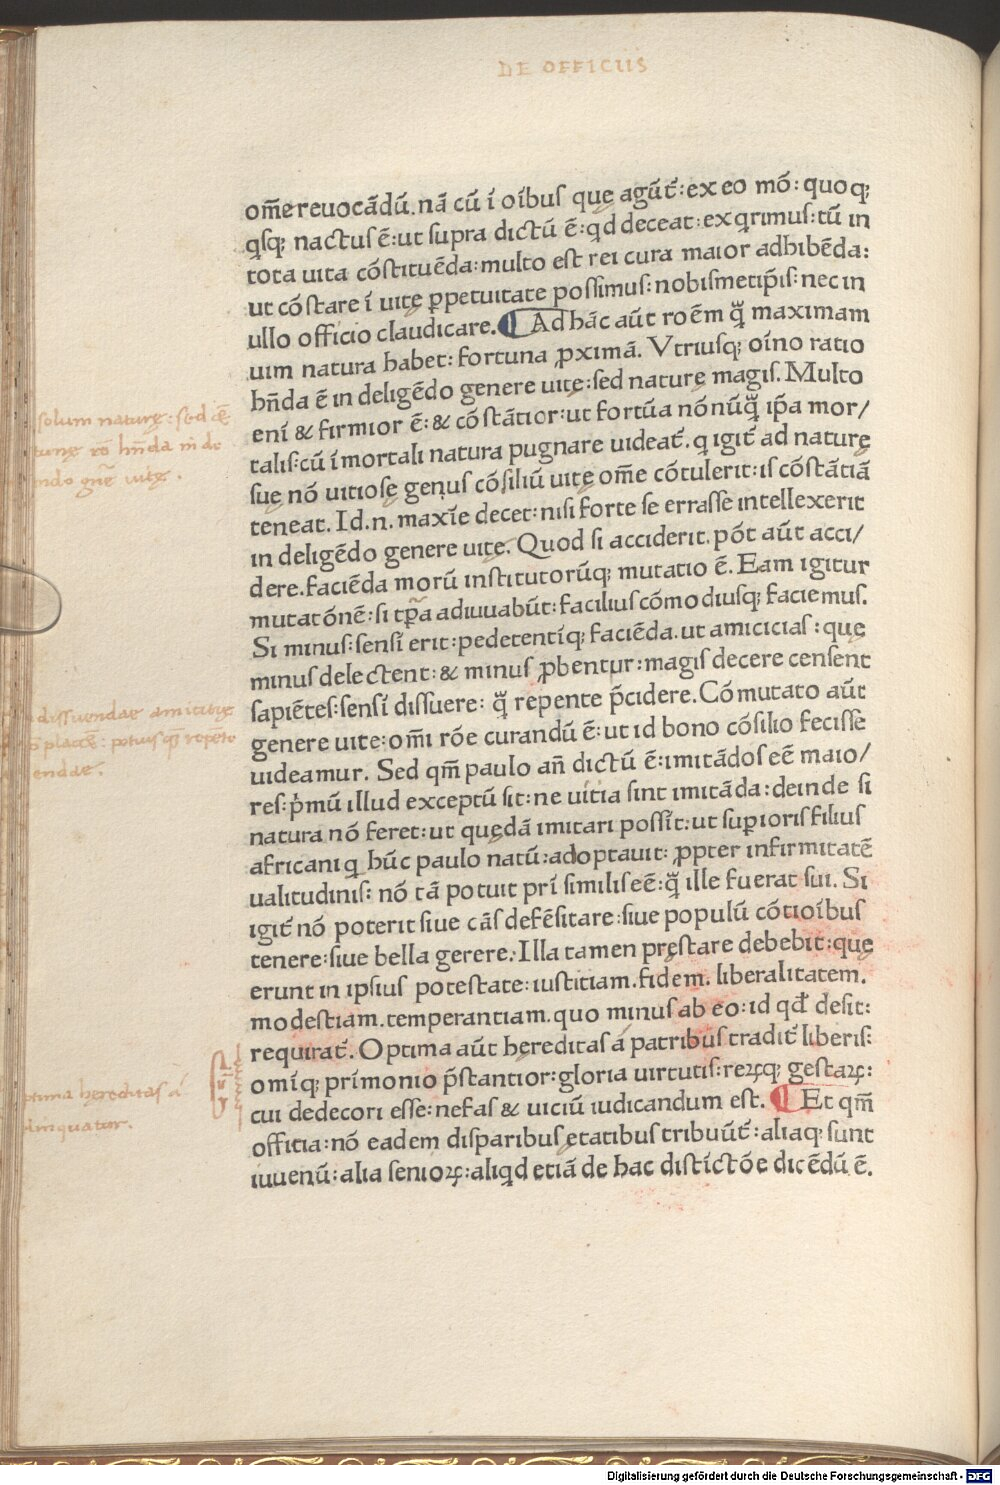 DE OFFICIIS
om̄e reuocādū. nā cū ī oībus quę agūt̄: ex eo mō: quo qꝫ
qſqꝫ nactus ē: ut ſupra dictū ē: qd deceat: exqrimus: tū in
tota uita cōſtituēda: multo eſt rei cura maior adhibēda:
ut cōſtare ī uitę ꝑpetuitate poſſimus: nobiſmetip̄is: nec in
ullo officio claudicare. Ad hāc aūt roēm q̄̃ maximam
uim natura habet: fortuna ꝓximā. Vtriuſqꝫ oīno ratio
hn̄da ē in deligēdo genere uitę: ſed naturę magiſ. Multo
enī & firmior ē: & cōſtātior: ut fortūa nōnūq̄̃ ip̄a mor/
talis: cū īmortali natura pugnare uideat̄. q igit̄ ad naturę
ſuę nō uitioſę genus cōſiliū uitę om̄e cōtulerit: is cōſtātiā
teneat. Id .n. maxīe decet: niſi forte ſe erraſſe intellexerit
in deligēdo genere uitę. Quod ſi acciderit. pōt aūt acci/
dere. faciēda morū inſtitutorūqꝫ mutatio ē. Eam igitur
mutatōnē: ſi tp̄a adiuuabūt: facilius cōmodiuſqꝫ faciemus.
Si minus: ſenſī erit: pedetentīqꝫ faciēda. ut amicicias: quę
minus delectent: & minus ꝓbentur: magis decere cenſent
ſapiētes: ſenſī diſſuere: q̄̃ repente p̄cidere. Cōmutato aūt
genere uite: om̄i rōe curandū ē: ut id bono cōſilio feciſſe
uideamur. Sed qm̄ paulo an̄ dictū ē: imitādos eē maio/
res: pͥmū illud exceptū ſit: ne uitia ſint imitāda: deinde ſi
natura nō feret: ut quędā imitari poſſit: ut ſuꝑioris filius
africani q hūc paulo natū: adoptauit: ꝓpter infirmitatē
ualitudinis: nō tā potuit prī ſimilis eē: q̄̃ ille fuerat ſui. Si
igit̄ nō poterit ſiue cās defēſitare: ſiue populū cōtioībus
tenere: ſiue bella gerere: Illa tamen pręſtare debebit: quę
erunt in ipſius poteſtate: iuſtitiam. fidem. liberalitatem.
modeſtiam. temperantiam. quo minus ab eo: id qd̄ deſit:
requirat̄. Optima aūt hęreditas á patribus tradit̄ liberis:
omīqꝫ prīmonio p̄ſtantior: gloria uirtutis: reꝝqꝫ geſtaꝝ:
cui dedecori eſſe: nefas & uiciū iudicandum eſt. Et qm̄
officia: nō eadem diſparibus ętatibus tribuūt̄: aliaqꝫ ſunt
iuuenū: alia ſenioꝝ: aliqd etiā de hac diſtīctōe dicēdū ē.
solum naturę: sed cē
tunę rō hn̄da in de
ndo gn̄e uitę.
dissuendae amicitię
placēt: potiusq̄̃ repēte
endae.
ptima hereditas á
linquatur.
Digitalisierung gefördert durch die Deutsche Forschungsgemeinschaft - DFG